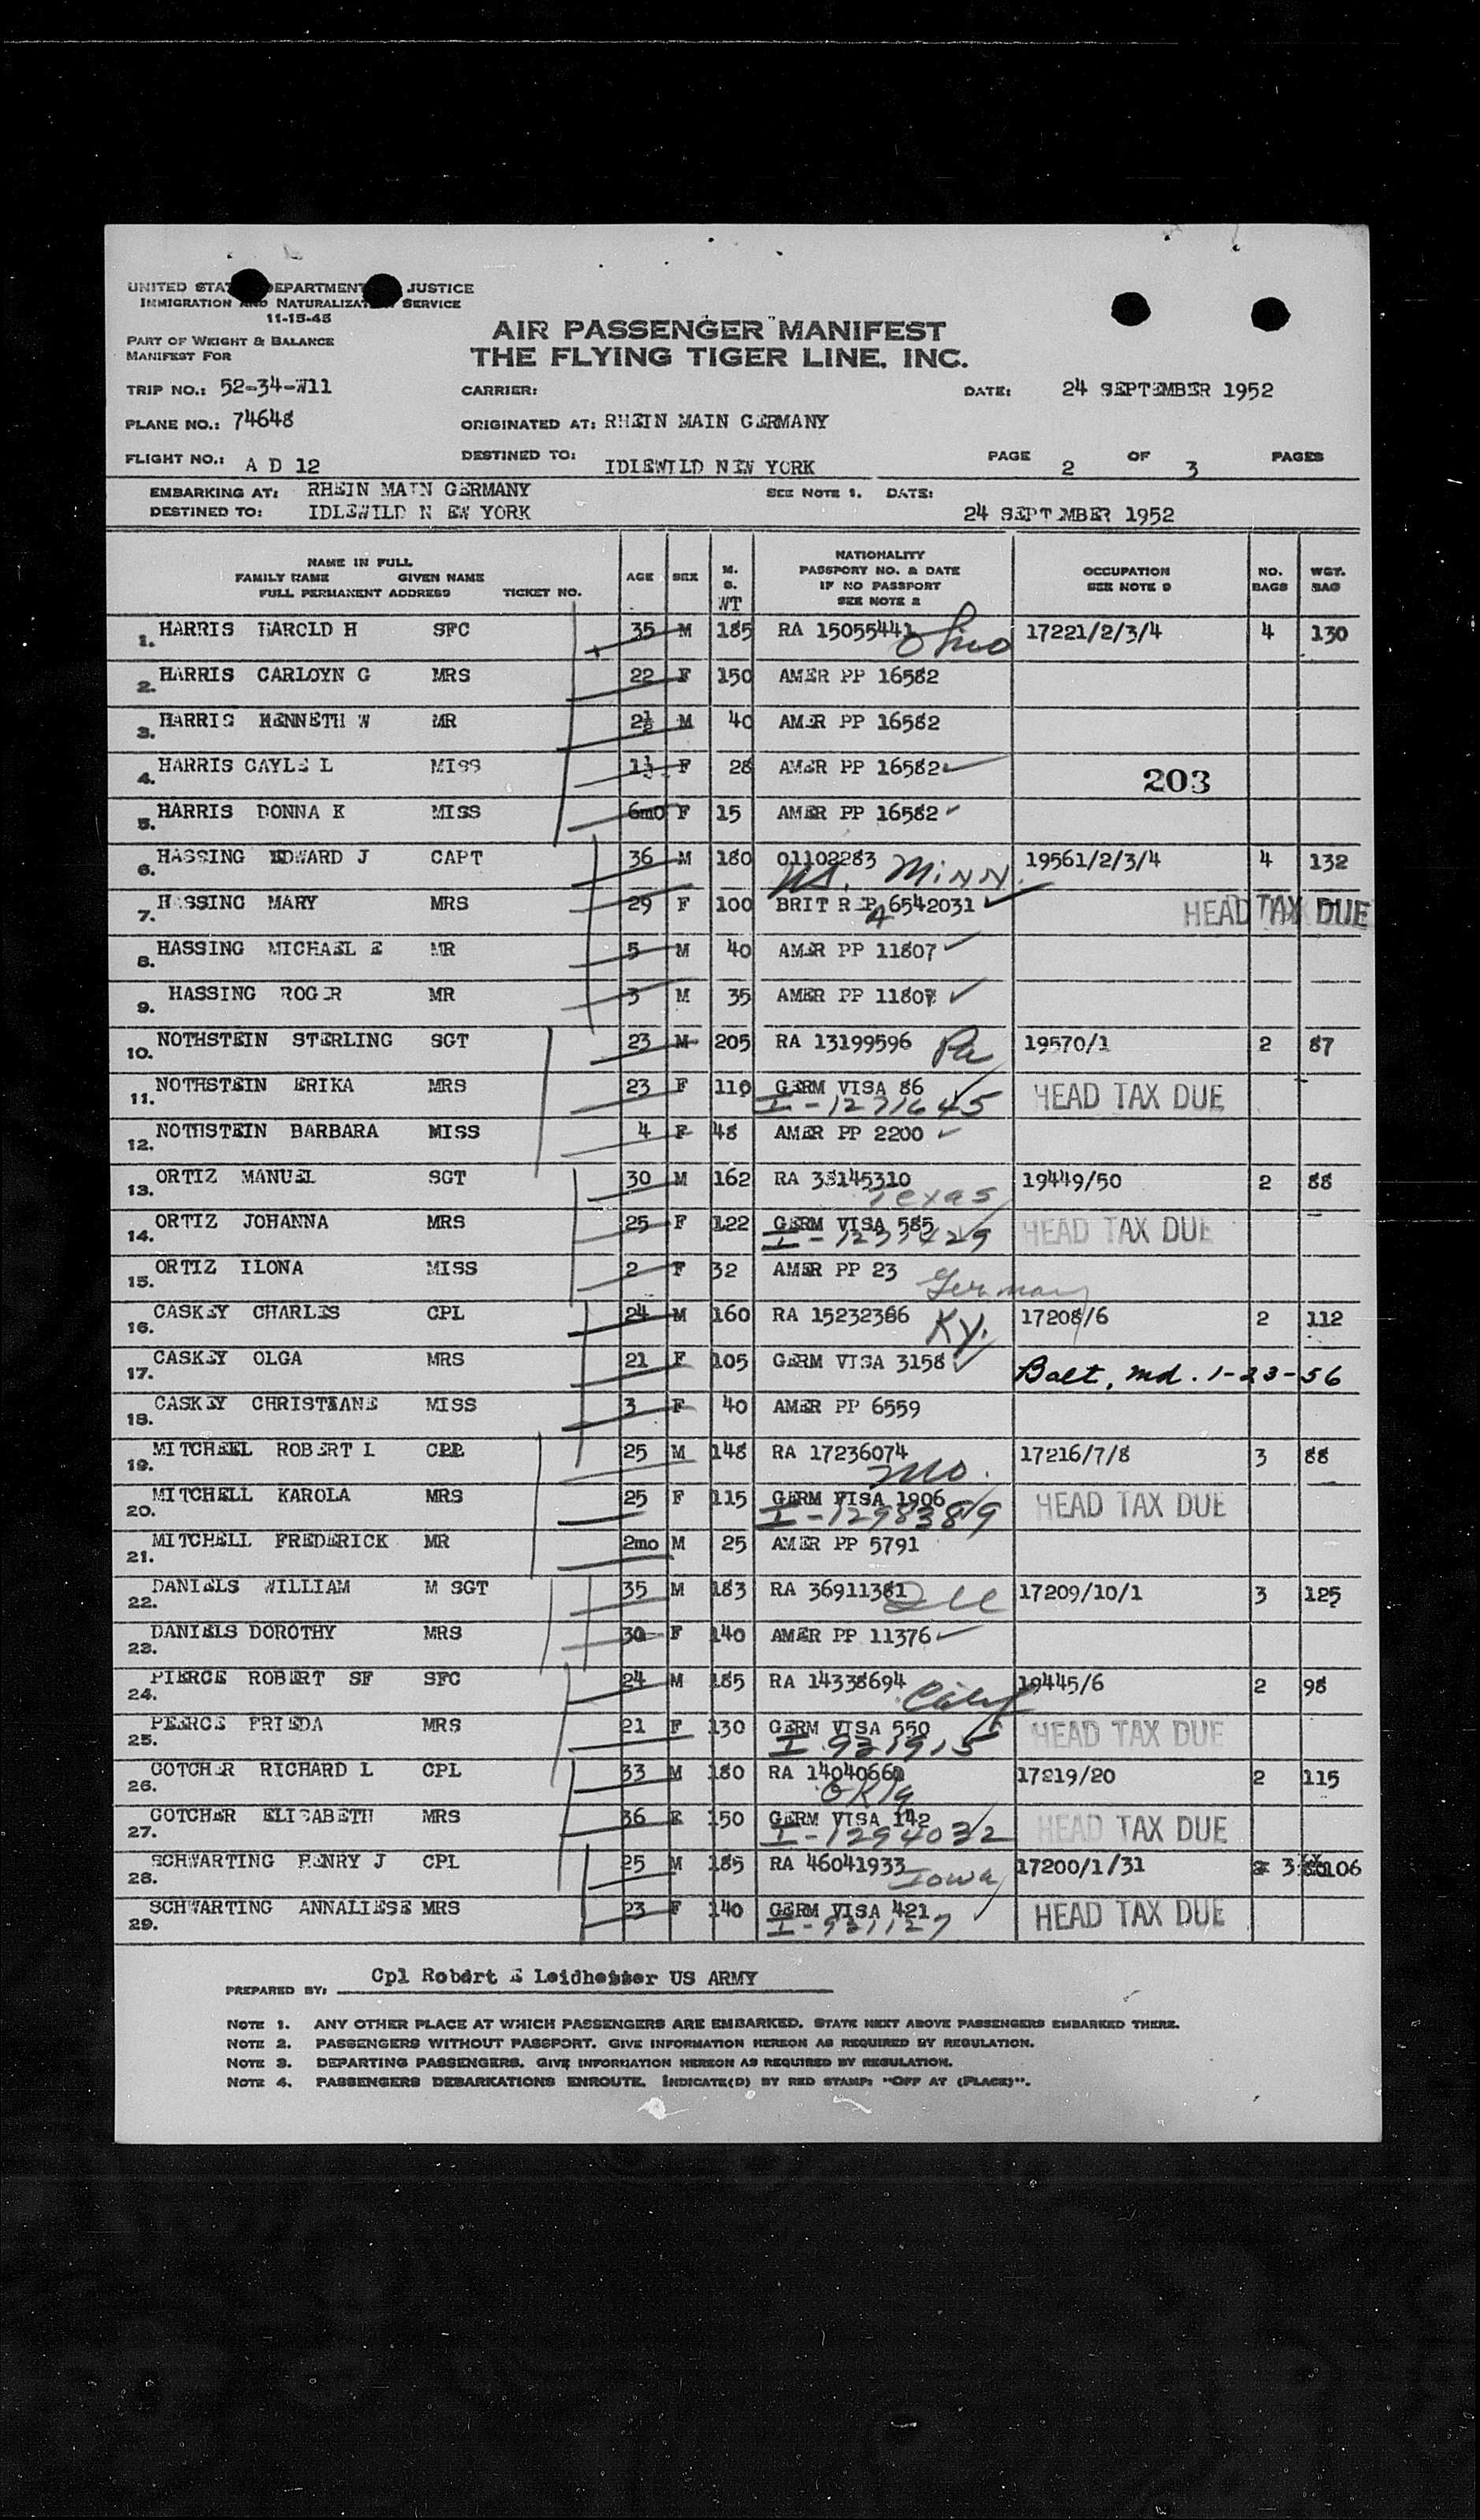 UNITED STATES DEPARTMENT OF JUSTICE
IMMIGRATION AND NATURALIZATION SERVICE
11-15-45
AIR PASSENGER MANIFEST
THE FLYING TIGER LINE, INC.
PART OF WEIGHT & BALANCE
MANIFEST FOR
TRIP NO.: 52-34-W11 CARRIER: DATE: 24 SEPTEMBER 1952
PLANE NO.: 74648 ORIGINATED AT: RHEIN MAIN GERMANY
FLIGHT NO.: A D 12 DESTINED TO: IDLEWILD NEW YORK PAGE 2 OF 3 PAGES
EMBARKING AT: RHEIN MAIN GERMANY SEE NOTE 1. DATE:
DESTINED TO: IDLEWILD N EW YORK 24 SEPT MBER 1952
NAME IN FULL
FAMILY NAME GIVEN NAME
FULL PERMANENT ADDRESS TICKET NO.
AGE SEX M. S. WT
NATIONALITY
PASSPORT NO. & DATE
IF NO PASSPORT
SEE NOTE 2
OCCUPATION
SEE NOTE 3
NO. BAGS
WGT. BAG
1. HARRIS HAROLD H SFC 35 M 185 RA 15055441 Ohio 17221/2/3/4 4 130
2. HARRIS CARLOYN G MRS 22 F 150 AMER PP 16582
3. HARRIS KENNETH W MR 2½ M 40 AMER PP 16582
4. HARRIS GAYLE L MISS 1½ F 28 AMER PP 16582 203
5. HARRIS DONNA K MISS 6mo F 15 AMER PP 16582
6. HASSING EDWARD J CAPT 36 M 180 01102283 Minn. 19561/2/3/4 4 132
7. HASSING MARY MRS 29 F 100 BRIT R P A 6542031 HEAD TAX DUE
8. HASSING MICHAEL E MR 5 M 40 AMER PP 11807
9. HASSING ROGER MR 3 M 35 AMER PP 11807
10. NOTHSTEIN STERLING SGT 23 M 205 RA 13199596 Pa 19570/1 2 87
11. NOTHSTEIN ERIKA MRS 23 F 110 GERM VISA 86 HEAD TAX DUE
I-1271645
12. NOTHSTEIN BARBARA MISS 4 F 48 AMER PP 2200
13. ORTIZ MANUEL SGT 30 M 162 RA 38145310 Texas 19449/50 2 88
14. ORTIZ JOHANNA MRS 25 F 122 GERM VISA 585 HEAD TAX DUE
15. ORTIZ ILONA MISS 2 F 32 AMER PP 23 Germany
16. CASKEY CHARLES CPL 24 M 160 RA 15232366 Ky. 17208/6 2 112
17. CASKEY OLGA MRS 21 F 105 GERM VISA 3158 Balt, Md. 1-23-56
18. CASKEY CHRISTIANE MISS 3 F 40 AMER PP 6559
19. MITCHEEL ROBERT L CPL 25 M 148 RA 17236074 Mo. 17216/7/8 3 88
20. MITCHELL KAROLA MRS 25 F 115 GERM VISA 1906 HEAD TAX DUE
I-1298389
21. MITCHELL FREDERICK MR 2mo M 25 AMER PP 5791
22. DANIELS WILLIAM M SGT 35 M 183 RA 36911381 Ill 17209/10/1 3 125
23. DANIELS DOROTHY MRS 30 F 140 AMER PP 11376
24. PIERCE ROBERT SF SFC 24 M 185 RA 14338694 Calif 19445/6 2 98
25. PEERCE FRIEDA MRS 21 F 130 GERM VISA 550 HEAD TAX DUE
I 921915
26. GOTCHER RICHARD L CPL 33 M 180 RA 14040660 Okla 17219/20 2 115
27. GOTCHER ELISABETH MRS 36 F 150 GERM VISA 142 HEAD TAX DUE
I-1294032
28. SCHWARTING HENRY J CPL 25 M 185 RA 46041933 Iowa 17200/1/31 3 106
29. SCHWARTING ANNALIESE MRS 23 F 140 GERM VISA 421 HEAD TAX DUE
I-921127
PREPARED BY: Cpl Robert E Leidhesser US ARMY
NOTE 1. ANY OTHER PLACE AT WHICH PASSENGERS ARE EMBARKED. STATE NEXT ABOVE PASSENGERS EMBARKED THERE.
NOTE 2. PASSENGERS WITHOUT PASSPORT. GIVE INFORMATION HEREON AS REQUIRED BY REGULATION.
NOTE 3. DEPARTING PASSENGERS. GIVE INFORMATION HEREON AS REQUIRED BY REGULATION.
NOTE 4. PASSENGERS DEBARKATIONS ENROUTE. INDICATE(D) BY RED STAMP: "OFF AT (PLACE)".